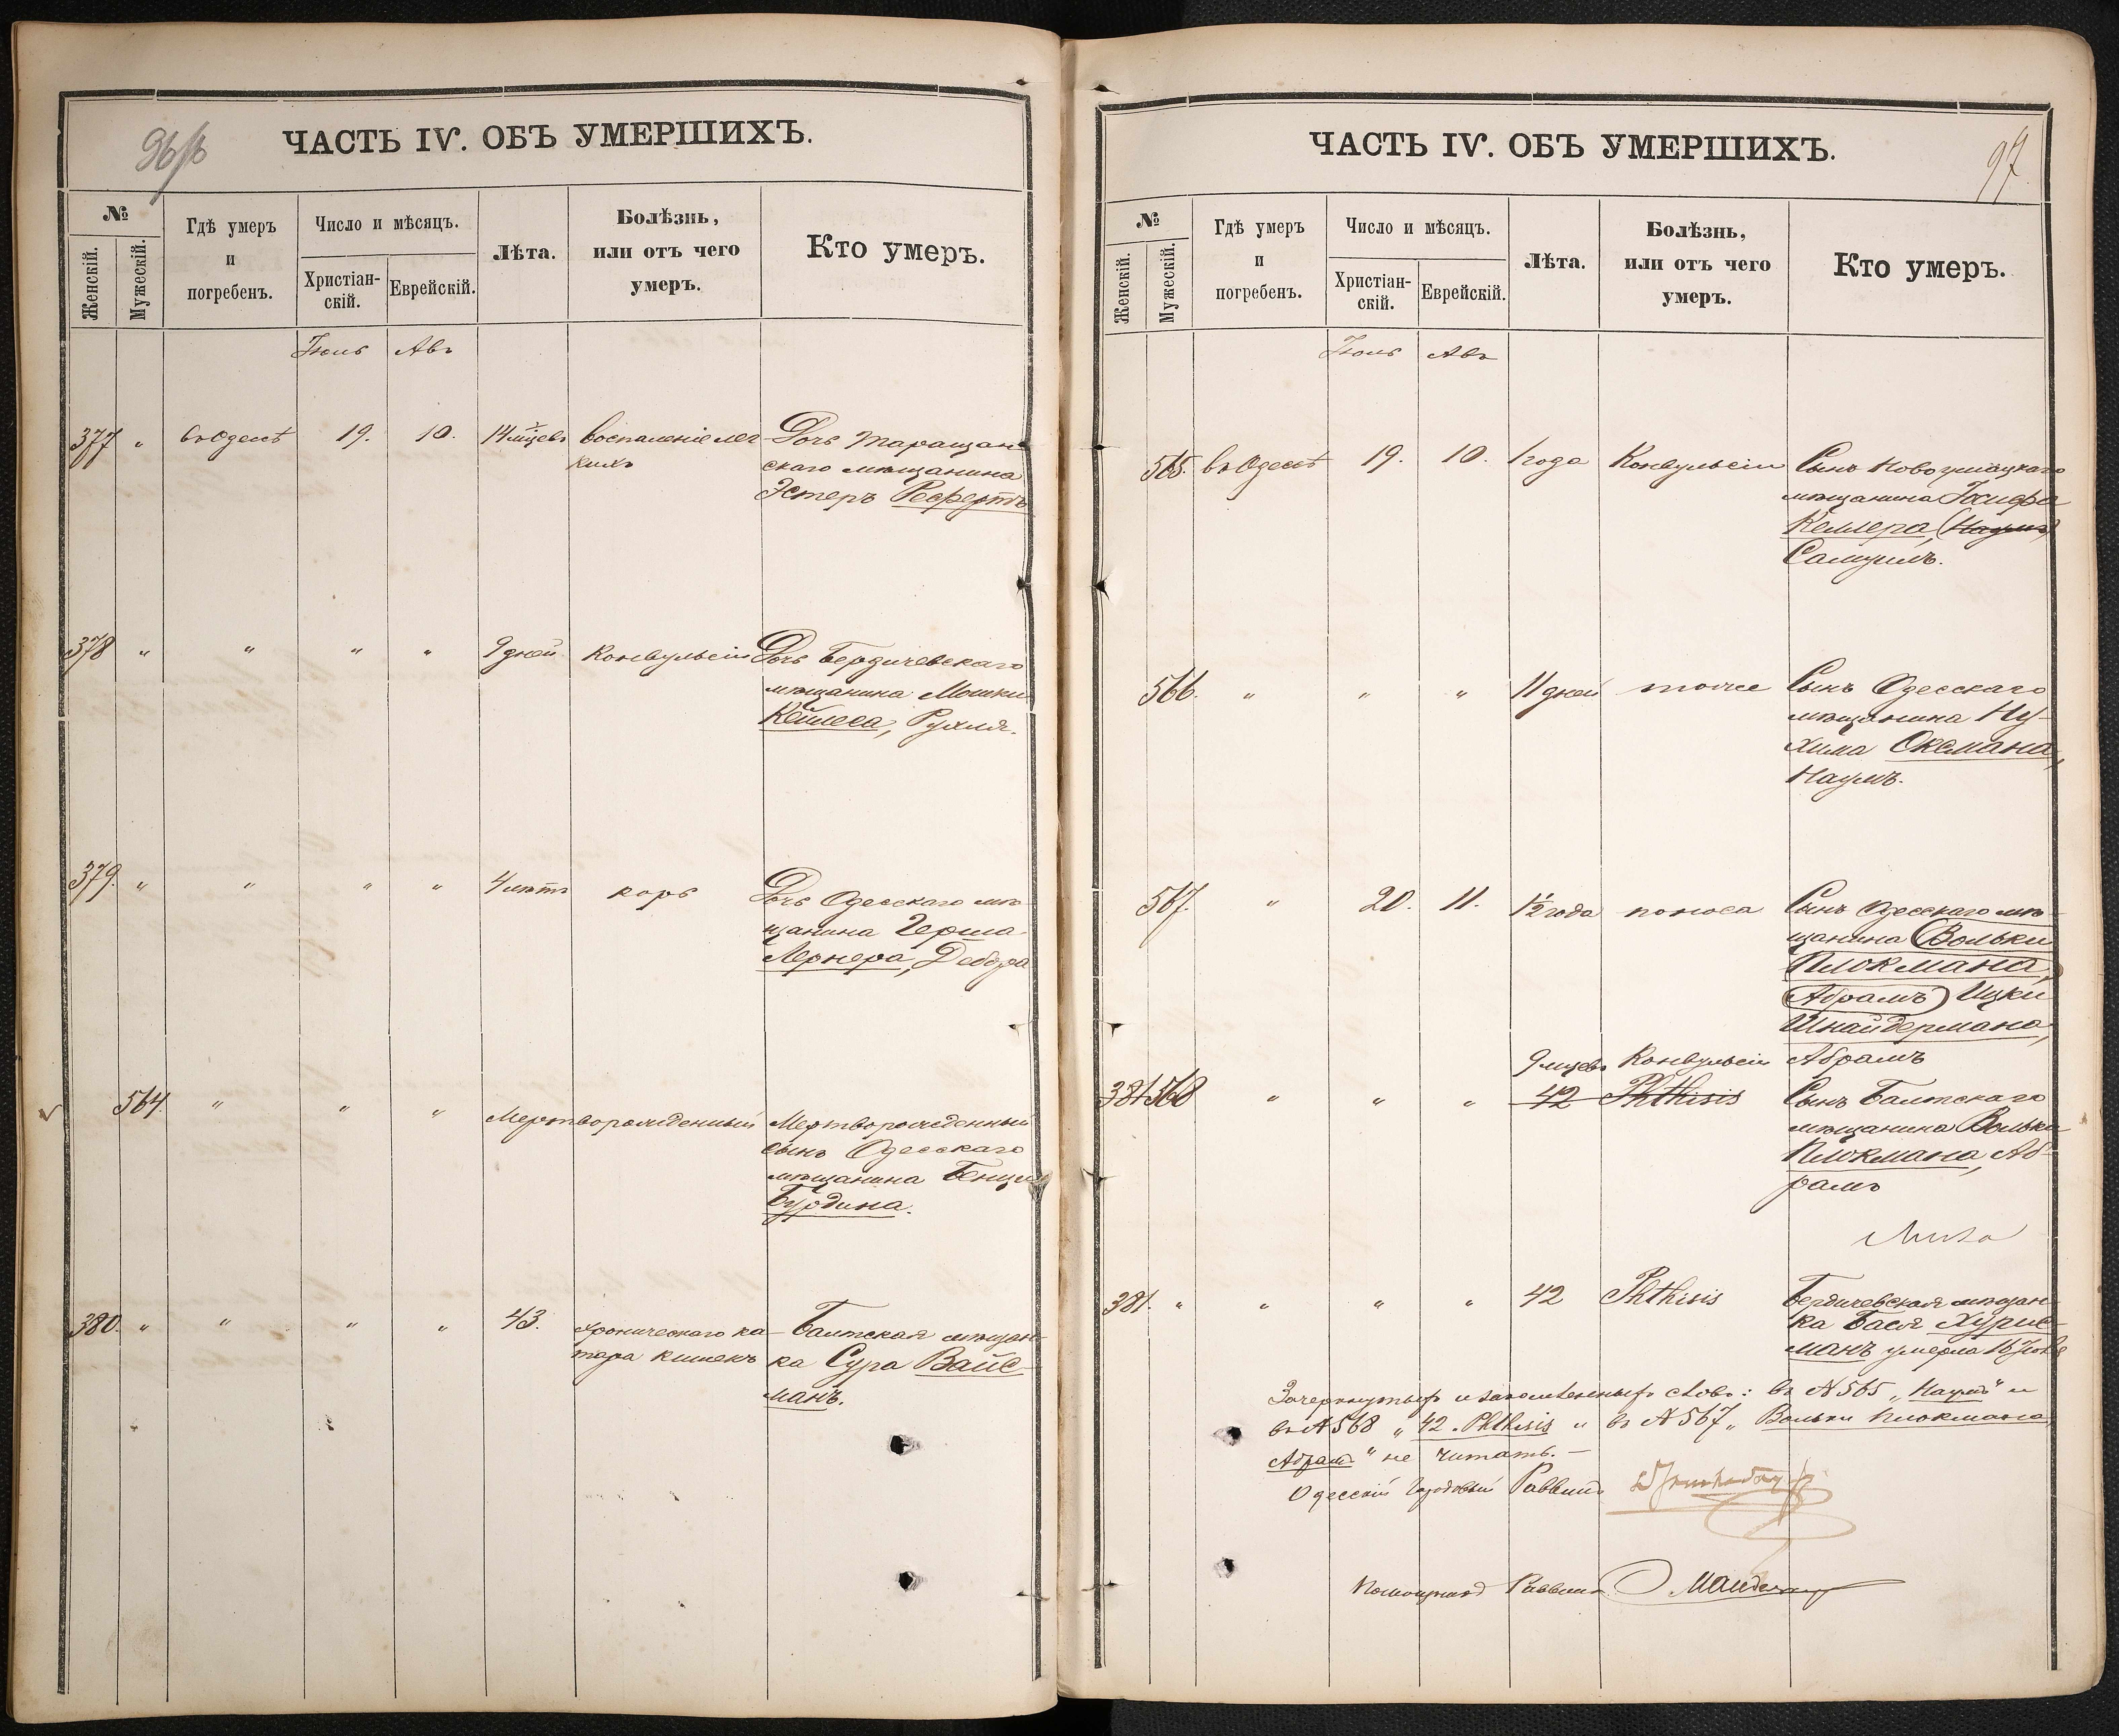 96/б
ЧАСТЬ IV. ОБЪ УМЕРШИХЪ.
№
Женскій.
Мужескій.
Гдѣ умеръ
и
погребенъ.
Число и мѣсяцъ.
Христіан-
скій.
Еврейскій.
Лѣта.
Болѣзнь,
или отъ чего
умеръ.
Кто умеръ.
Іюль Авъ
377 „ въ Одессѣ 19. 10. 14 мѣцевъ воспаленіе лег- Дочь Таращан-
кихъ скаго мѣщанина
Эстеръ
378 „ „ „ „ 9 дней Конвульсіи Дочь Бердичевскаго
мѣщанина Мошки
Кейлеса, Рухля.
379. „ „ „ „ 4 лѣтъ корь Дочь Одесскаго мѣ-
щанина Герша
Лернера, Дебора
564. „ „ „ Мертворожденный Мертворожденный
сынъ Одесскаго
мѣщанина Бенци
Бурдина.
380. „ „ „ „ 43. хроническаго ка- Балтская мѣщан-
тара кишекъ ка Сура Вайс-
манъ.
97
ЧАСТЬ IV. ОБЪ УМЕРШИХЪ.
№
Женскій.
Мужескій.
Гдѣ умеръ
и
погребенъ.
Число и мѣсяцъ.
Христіан-
скій.
Еврейскій.
Лѣта.
Болѣзнь,
или отъ чего
умеръ.
Кто умеръ.
Іюль Авъ
565. въ Одессѣ 19. 10. 1 года Конвульсіи Сынъ Новоушицкаго
мѣщанина Іосифа
Келлера, (Наумъ)
Самуилъ.
566. „ „ „ 11 дней тоже Сынъ Одесскаго
мѣщанина Ну-
хима Оксмана,
Наумъ.
567. „ 20. 11. 1½ года поноса Сынъ Одесскаго мѣ-
щанина (Вольки
Плокмана,
Абрамъ) Ицки
Шнайдермана,
9 мцевъ Конвульсіи Абрамъ
381 568 „ „ „ 42 Phthisis Сынъ Балтскаго
мѣщанина Вольки
Плокмана, Аб-
рамъ
381. „ „ „ „ 42 Phthisis Бердичевская мѣщан-
ка Бася Хурис-
манъ умерла 16 Іюля
Зачеркнутыхъ и словъ: въ № 565 „Наумъ" и
въ № 568 „42. Phthisis „ въ № 567 „Вольки Плокмана,
Абрамъ" не читать. —
Одесскій Городовый Раввинъ
Помощникъ Раввина